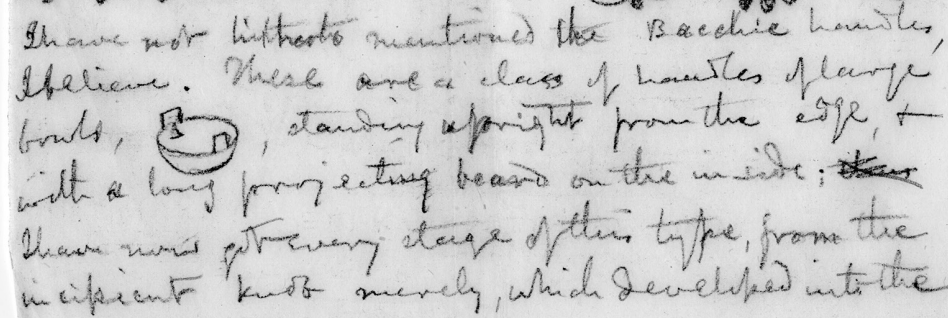 I have not hitherto mentioned the Bacchic handles,
I believe. These are a class of handles of large
bowls, , standing upright from the edge, &
with a long projecting beard on the inside;
I have now got every stage of this type, from the
incipient knob merely, which developed into the